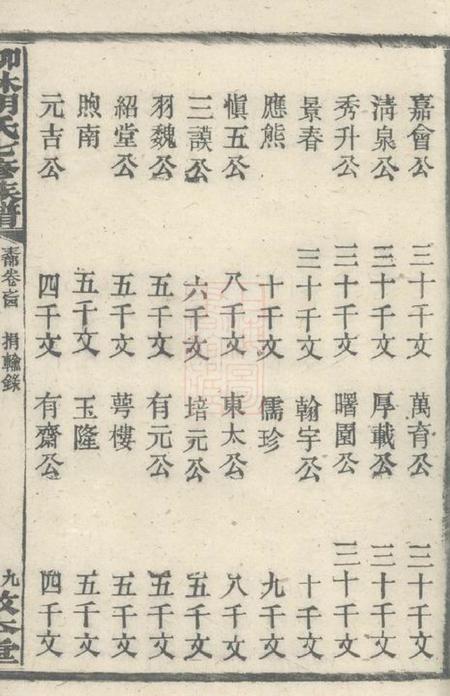 嘉會公 三十千文 萬育公 三十千文
淸泉公 三十千文 厚載公 三十千文
秀升公 三十千文 曙園公 三十千文
景春 三十千文 翰宇公 十千文
應熊 十千文 儒珍 九千文
愼五公 八千文 東太公 八千文
三謨公 六千文 培元公 五千文
羽魏公 五千文 有元公 五千文
紹堂公 五千文 萼樓 五千文
煦南 五千文 玉隆 五千文
元吉公 四千文 有齋公 四千文
胡氏七修族譜 卷首 捐輸錄 九 敦本堂